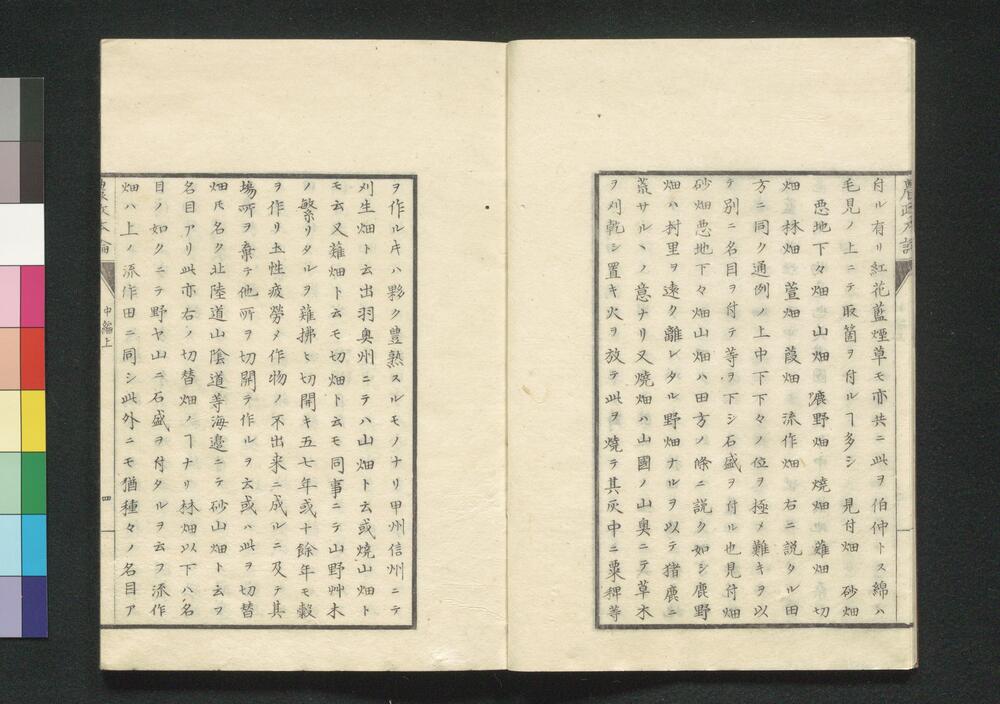 付ル有リ紅花藍煙草モ亦共ニ此ヲ伯仲トス綿ハ
毛見ノ上ニテ取箇ヲ付ルヿ多シ　見付畑　砂畑
悪地下々畑　山畑　鹿野畑　燒畑　薙畑　切
畑　林畑　萱畑　葭畑　流作畑　右ニ説タル田
方ニ同ク通例ノ上中下下々ノ位ヲ極メ難キヲ以
テ別ニ名目ヲ付テ等ヲ下シ石盛ヲ付ル也見付畑
砂畑悪地下々畑山畑ハ田方ノ條ニ説ク如シ鹿野
畑ハ村里ヲ遠ク離レタル野畑ナルヲ以テ猪鹿ニ
荒サルヽノ意ナリ又燒畑ハ山國ノ山奥ニテ草木
ヲ刈乾シ置キ火ヲ放テ此ヲ燒ラ其灰中ニ粟稗等
ヲ作ルキハ夥ク豊熟スルモノナリ甲州信州ニテ
刈生畑ト云出羽奥州ニテハ山畑ト云或燒山畑ト
モ云又薙畑ト云モ切畑ト云モ同事ニテ山野艸木
ノ繁リタルヲ雉拂ヒ切開キ五七年或十餘年モ穀
ヲ作リ土性疲勞メ作物ノ不出来ニ成ルニ及テ其
場所ヲ棄テ他所ヲ切開テ作ルヲ云或ハ此ヲ切替
畑𪜈名ク北陸道山陰道等海邉ニテ砂山畑ト云フ
名目アリ此亦右ノ切替畑ノヿナリ林畑以下ハ名
目ノ如クニテ野ヤ山ニ石盛ヲ付タルヲ云フ流作
畑ハ上ノ流作田ニ同シ此外ニモ猶種々ノ名目ア
中編上
四